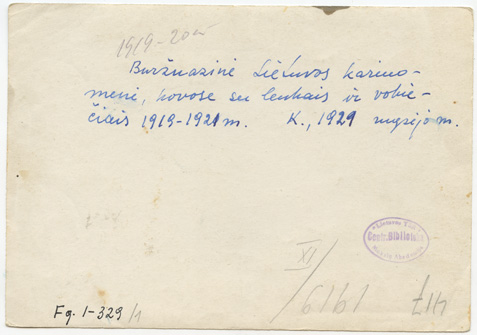 1919-20 m
Buržuazinė Lietuvos kariuo-
menė, kovose su lenkais ir vokie-
čiais 1919-1921 m. K., 1929 rugsėjo m.
Centr. Biblioteka
XI
1919
417
Fg. 1-329/1